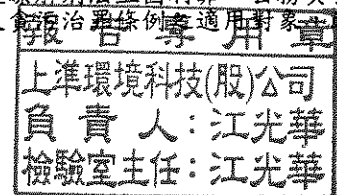 貪污治罪條例之適用對象
報告專用章
上準環境科技(股)公司
負責人:江光華
檢驗室主任:江光華